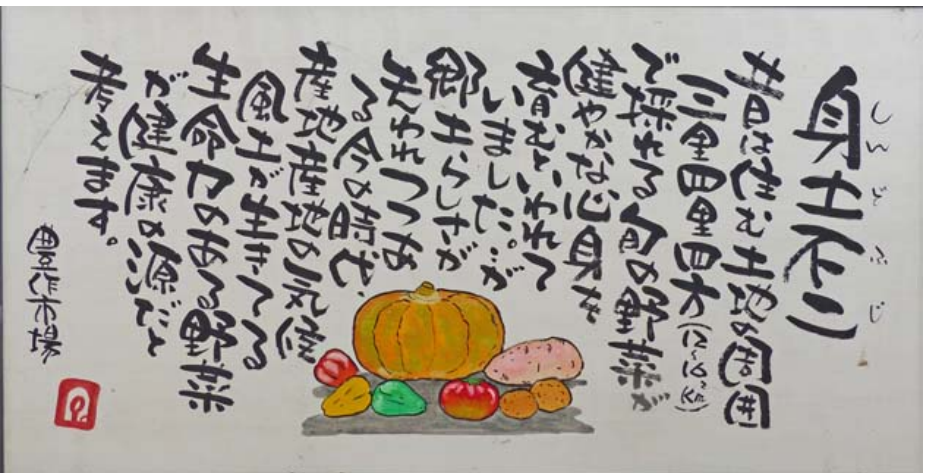 身土不二
しんどふじ
昔は住む土地の周囲
三里四里四方(12~16Km²)
で採れる旬の野菜が
健やかな心身を
育むといわれて
しました。が
郷土らしさが
失われつつあ
る今の時代、
産地産地の気候
風土が生きてる
生命力のある野菜
が健康の源だと
考えます。
豊作市場